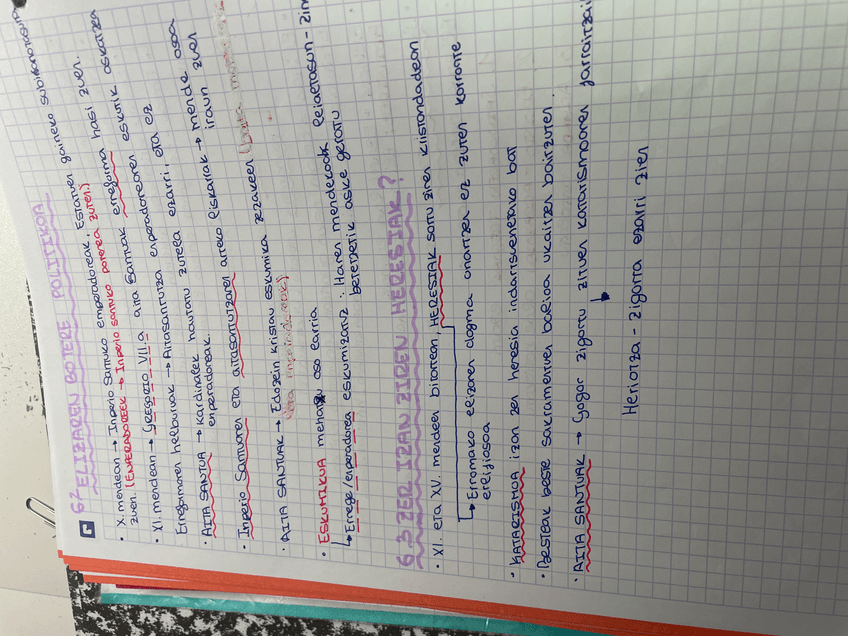 6.2 ELIZAREN BOTERE POLITIKOA
• X. mendean → Inperio Santuko enperadoreak, Estatuen gaineko subiranotasuna
zuen. (ENPERADOREEK → Inperio santuko boterea zuten.)
• XI. mendean → GREGORIO VII.a aita santuak erreforma hasi zuen.
Erreformaren helburuak → Aitasantutza enperadorearen eskutik askatzea
• AITA SANTUA → Kardinalek hautatu zutela ezarri, eta ez
enperadoreak.
• Inperio Santuaren eta aitasantutzaren arteko liskarrak → mende osoa
iraun zuen
• AITA SANTUAK → Edozein kristau eskumika zezakeen
• ESKUMIKUA mehatxu oso larria
↳ Errege/enperadorea eskumizatuz : Haren mendekoak leialtasun - zin
betetzetik aske geratu
6.3 ZER IZAN ZIREN HERESIAK?
• XI. eta XV. mendeen bitartean, HERESIAK sortu ziren kristandadean
↳ Erromako elizaren dogma onartzen ez zuten korronte
erlijiosoa
• KATARISMOA izan zen heresia indartsuenetako bat
• Besteak beste sakramentuen balioa ukatzen baitzuten.
• AITA SANTUAK → Gogor zigortu zituen katarismoaren jarraitzai
↳
Heriotza - zigorra ezarri zien